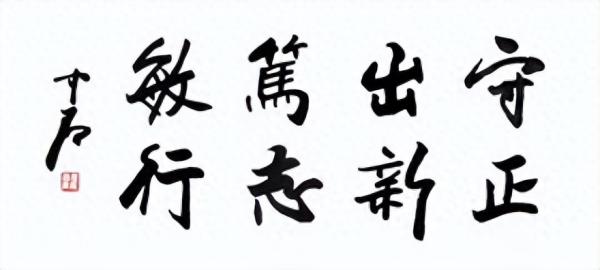 守正
出新
篤志
敏行
中石